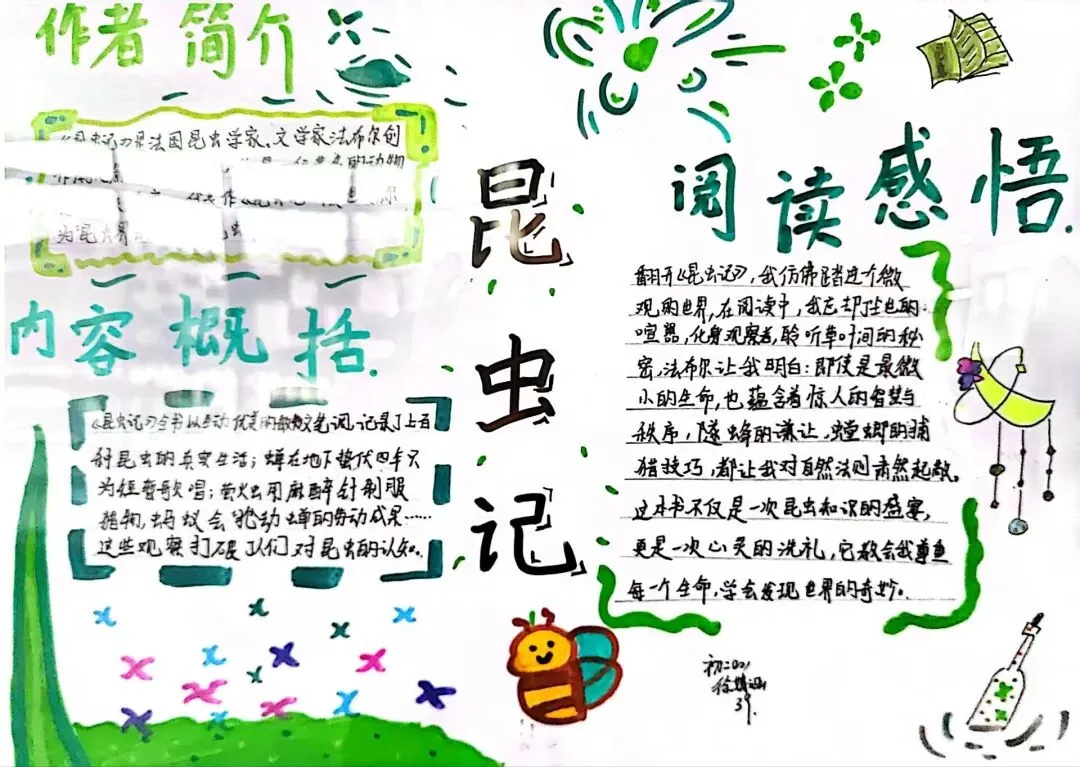 作者 简介
《昆虫记》是法国昆虫学家、文学家法布尔创
的动物
为昆虫界
内容概括.
《昆虫记》全书以生动优美的散文笔调,记录了上百
种昆虫的真实生活;蝉在地下蛰伏四年只
为短暂歌唱;萤火虫用麻醉针制服
猎物,蚂蚁会抢劫蝉的劳动成果……
这些观察打破了人们对昆虫的认知。
昆
虫
记
阅读感悟.
翻开《昆虫记》,我仿佛踏进个微
观的世界,在阅读中,我忘却了尘世的
喧嚣,化身观察者,聆听草叶间的秘
密,法布尔让我明白:即使是最微
小的生命,也蕴含着惊人的智慧与
秩序,隧蜂的谦让,螳螂的捕
猎技巧,都让我对自然法则肃然起敬。
这本书不仅是一次昆虫知识的盛宴,
更是一次心灵的洗礼,它教会我尊重
每一个生命,学会发现世界的奇妙。
初二
39.